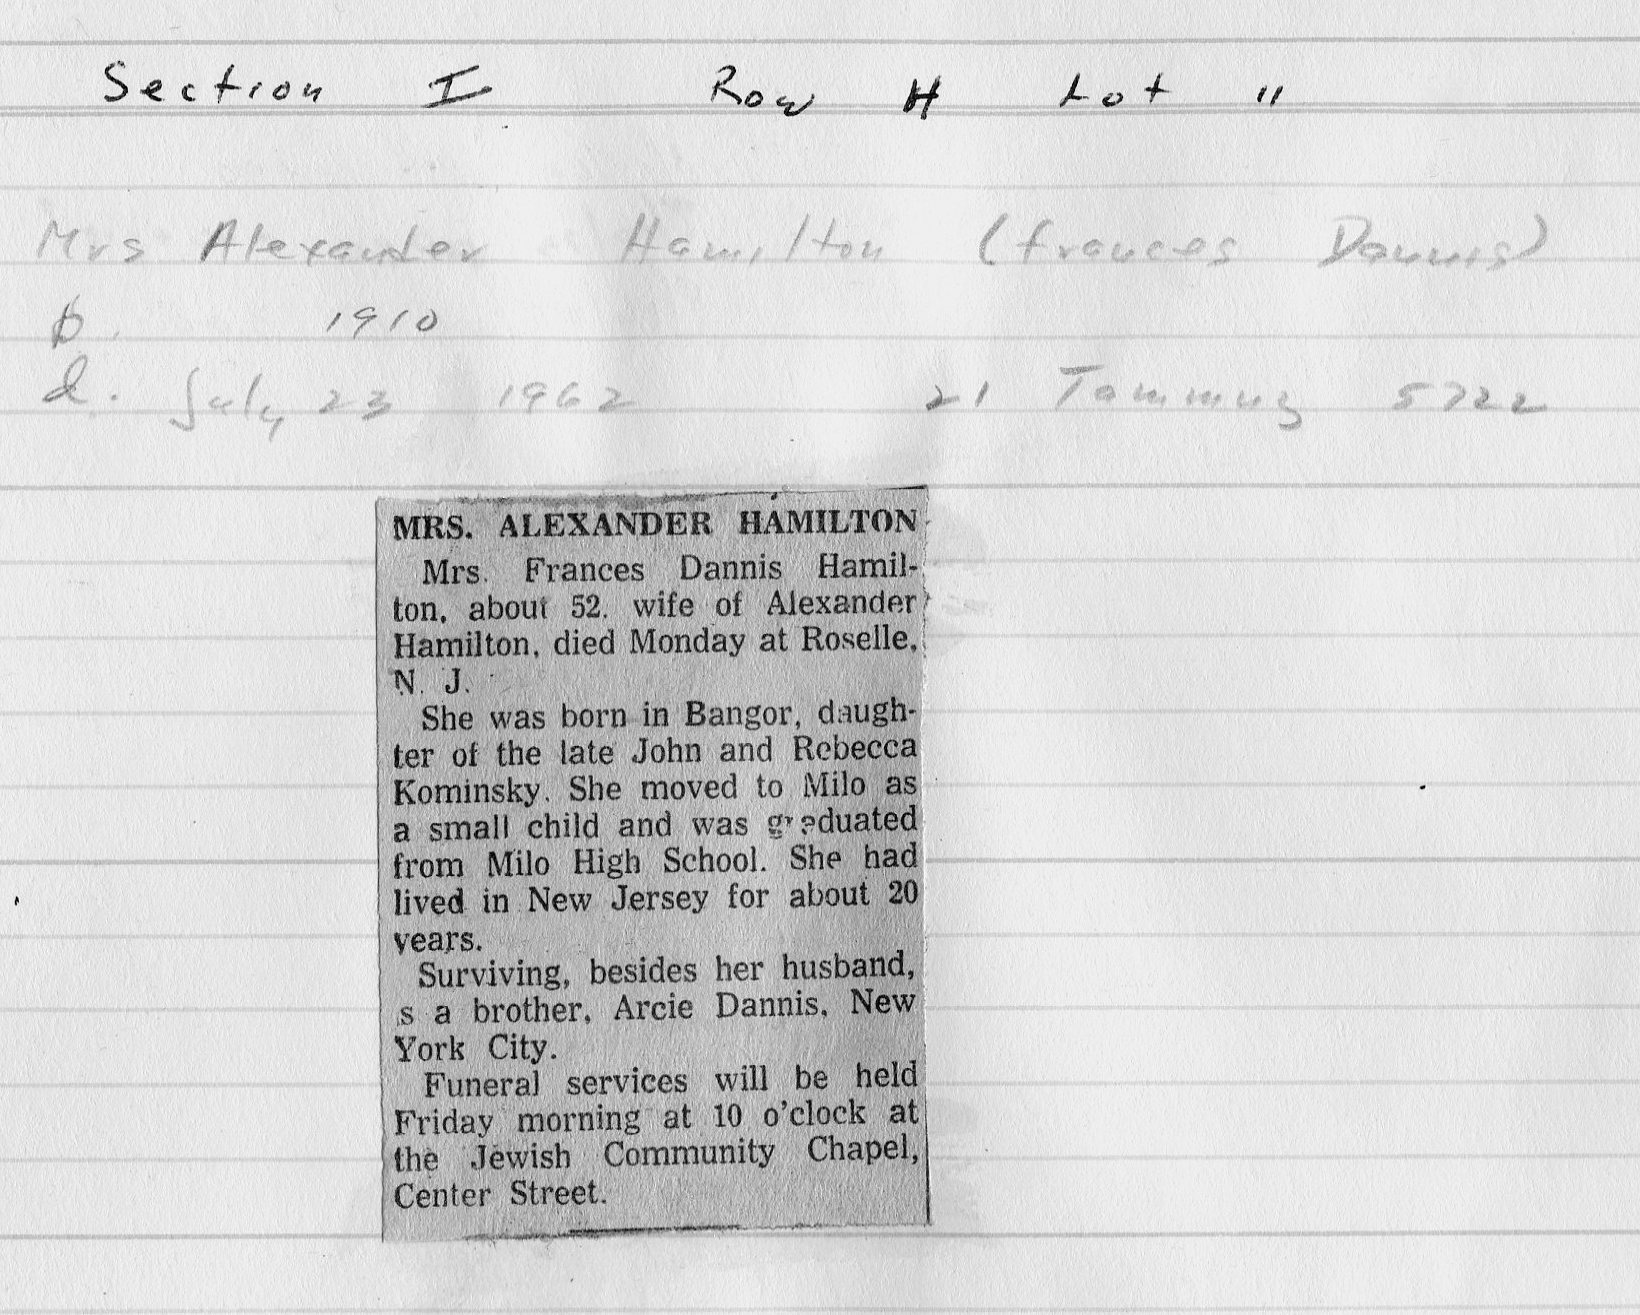 Section I Row H Lot 11
Mrs Alexander Hamilton (Frances Dannis)
b. 1910
d. July 23 1962 21 Tammuz 5722
MRS. ALEXANDER HAMILTON
Mrs. Frances Dannis Hamil-
ton, about 52, wife of Alexander
Hamilton, died Monday at Roselle,
N. J.
She was born in Bangor, daugh-
ter of the late John and Rebecca
Kominsky. She moved to Milo as
a small child and was graduated
from Milo High School. She had
lived in New Jersey for about 20
years.
Surviving, besides her husband,
s a brother, Arcie Dannis, New
York City.
Funeral services will be held
Friday morning at 10 o'clock at
the Jewish Community Chapel,
Center Street.